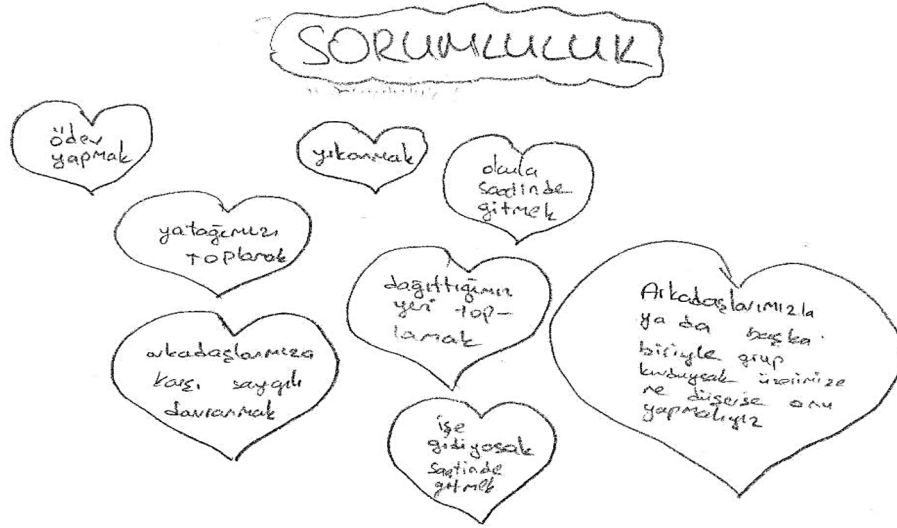 SORUMLULUK
ödev
yapmak
yıkanmak
okula
saatinde
gitmek
yatağımızı
toplamak
dağıttığımız
yeri top-
lamak
arkadaşlarımıza
karşı saygılı
davranmak
işe
gidiyosak
saatinde
gitmek
Arkadaşlarımızla
ya da başka
biriyle grup
kurduysak üzerimize
ne düşerse onu
yapmalıyız